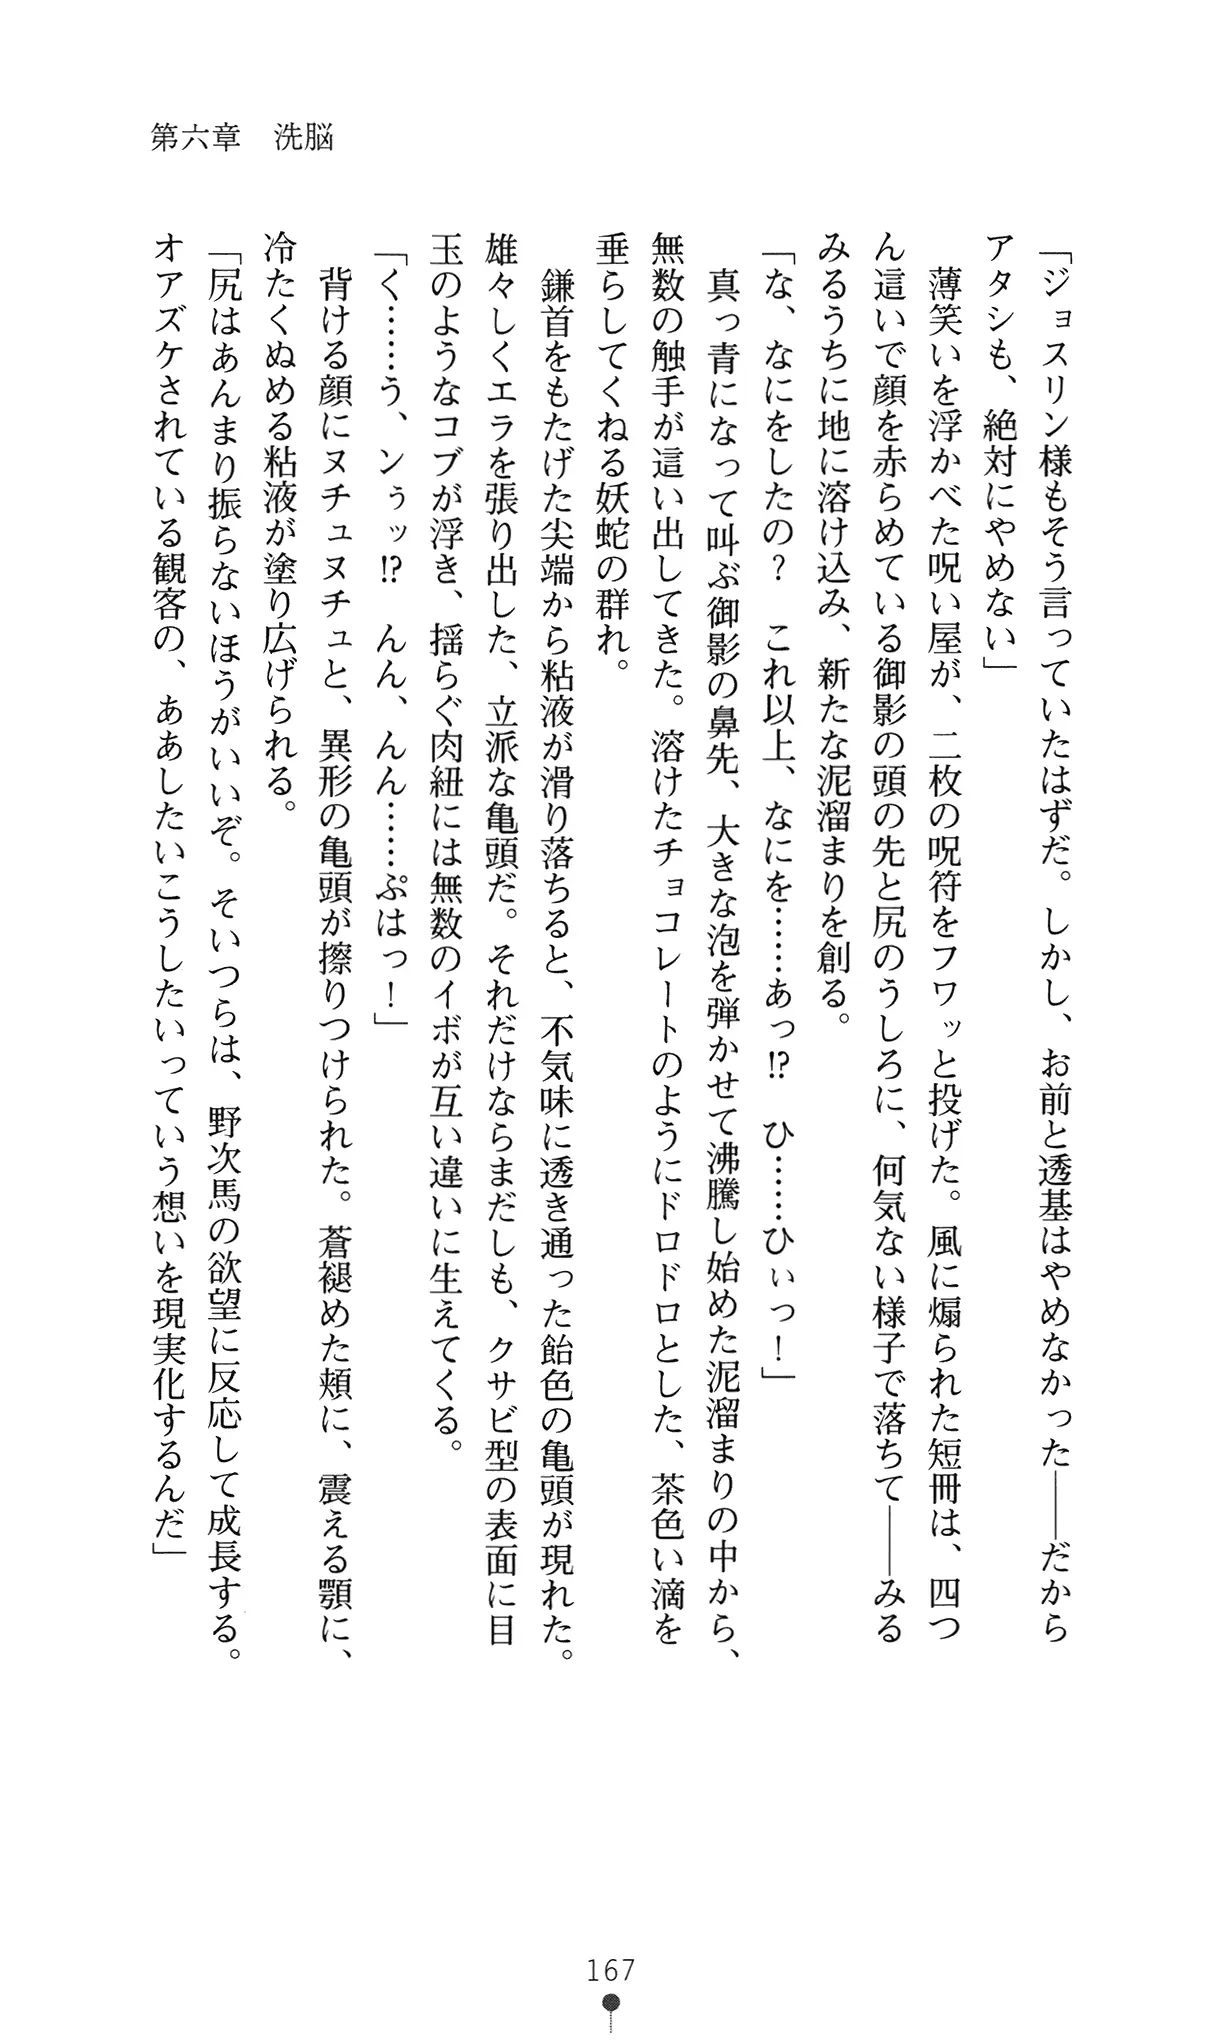 第六章　洗脳
「ジョスリン様もそう言っていたはずだ。しかし、お前と透基はやめなかった――だから
アタシも、絶対にやめない」
　薄笑いを浮かべた呪い屋が、二枚の呪符をフワッと投げた。風に煽られた短冊は、四つ
ん這いで顔を赤らめている御影の頭の先と尻のうしろに、何気ない様子で落ちて――みる
みるうちに地に溶け込み、新たな泥溜まりを創る。
「な、なにをしたの？　これ以上、なにを……あっ!?　ひ……ひぃっ！」
　真っ青になって叫ぶ御影の鼻先、大きな泡を弾かせて沸騰し始めた泥溜まりの中から、
無数の触手が這い出してきた。溶けたチョコレートのようにドロドロとした、茶色い滴を
垂らしてくねる妖蛇の群れ。
　鎌首をもたげた尖端から粘液が滑り落ちると、不気味に透き通った飴色の亀頭が現れた。
雄々しくエラを張り出した、立派な亀頭だ。それだけならまだしも、クサビ型の表面に目
玉のようなコブが浮き、揺らぐ肉紐には無数のイボが互い違いに生えてくる。
「く……う、ンぅッ!?　んん、んん……ぷはっ！」
　背ける顔にヌチュヌチュと、異形の亀頭が擦りつけられた。蒼褪めた頬に、震える顎に、
冷たくぬめる粘液が塗り広げられる。
「尻はあんまり振らないほうがいいぞ。そいつらは、野次馬の欲望に反応して成長する。
オアズケされている観客の、ああしたいこうしたいっていう想いを現実化するんだ」
167